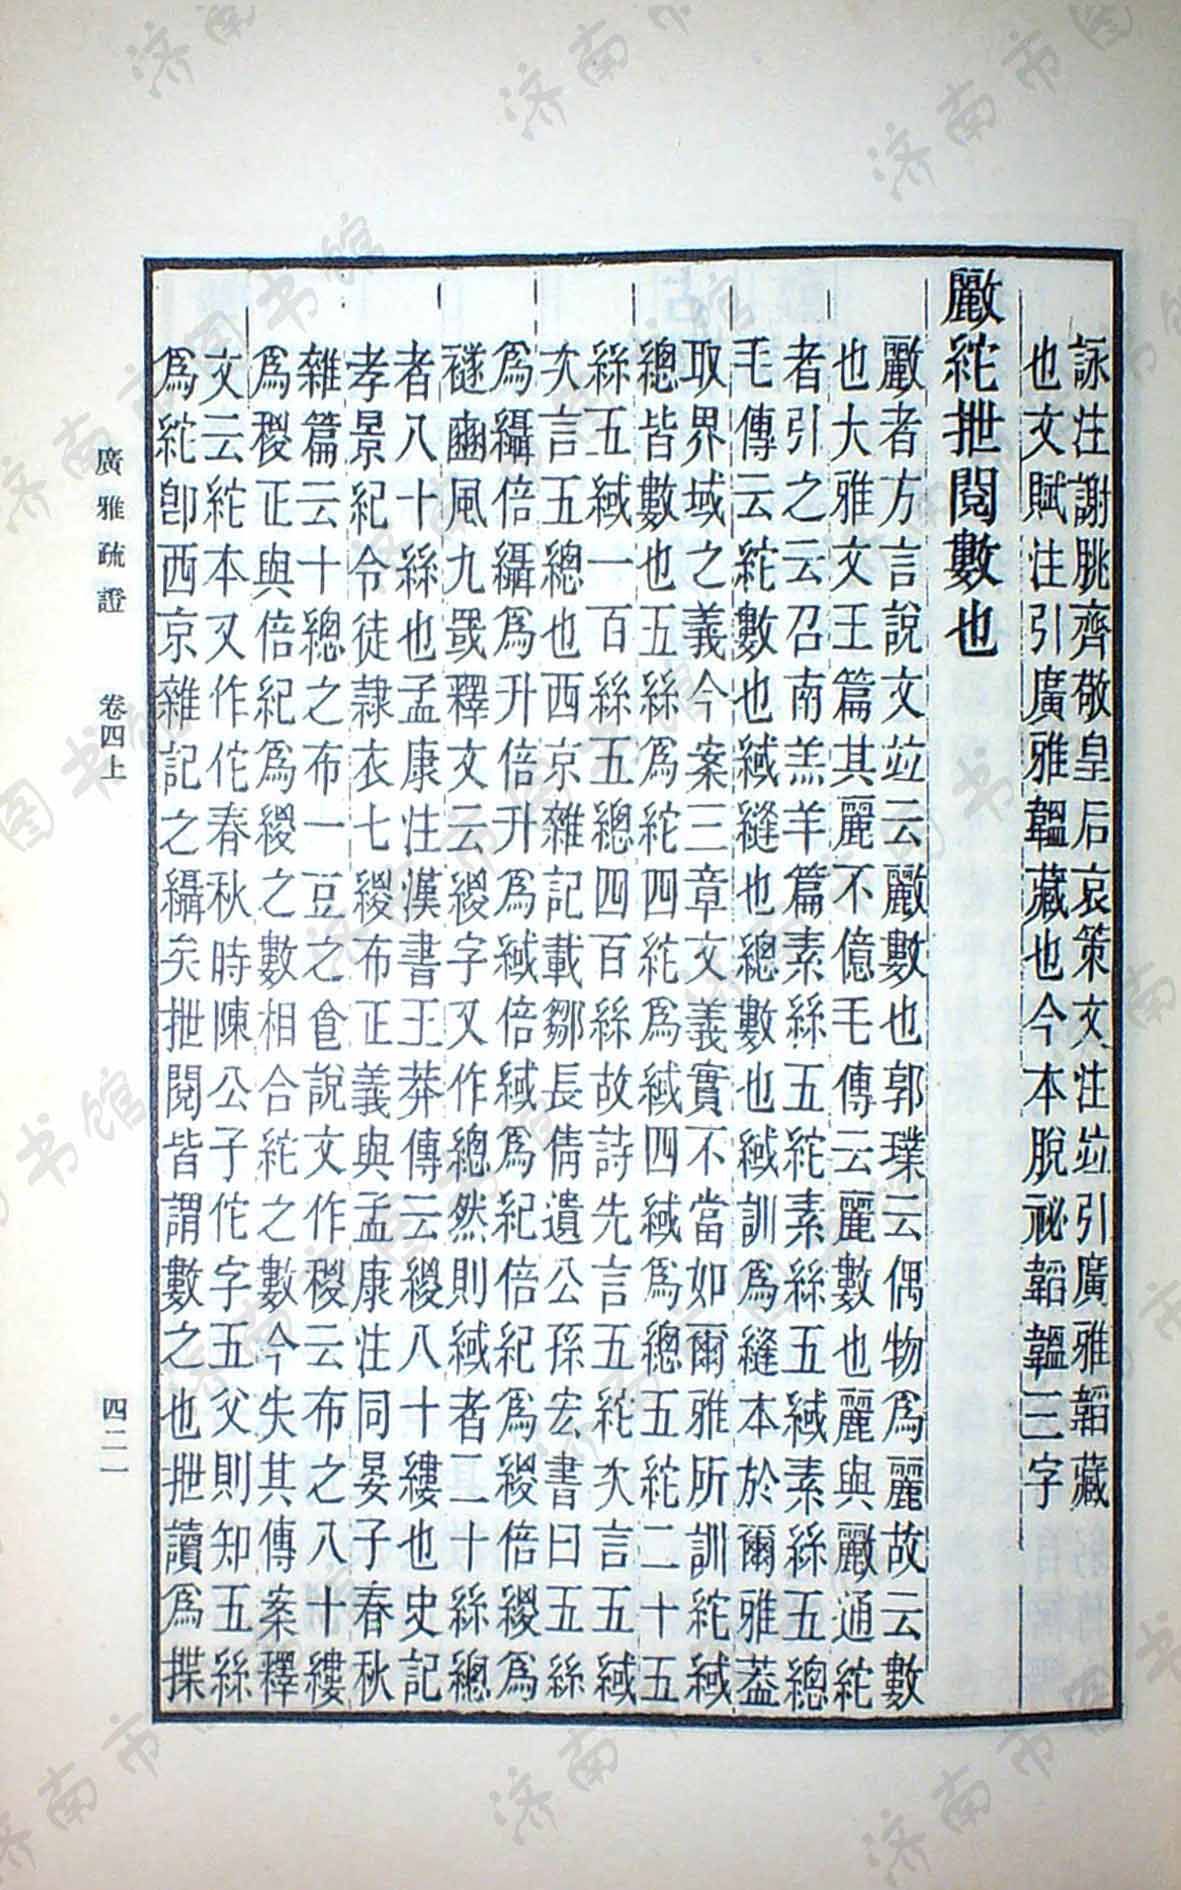 詠注謝朓齊敬皇后哀策文注竝引廣雅韜藏
也文賦注引廣雅韞藏也今本脫祕韜韞三字
𢿨紽抴閱數也
𢿨者方言說文竝云𢿨數也郭璞云偶物爲麗故云數
也大雅文王篇其麗不億毛傳云麗數也麗與𢿨通紽
者引之云召南羔羊篇素絲五紽素絲五緎素絲五總
毛傳云紽數也緎縫也總數也緎訓爲縫本於爾雅葢
取界域之義今案三章文義實不當如爾雅所訓紽緎
總皆數也五絲爲紽四紽爲緎四緎爲總五紽二十五
絲五緎一百絲五總四百絲故詩先言五紽次言五緎
次言五總也西京雜記載鄒長倩遺公孫宏書曰五絲
爲䌰倍䌰爲升倍升爲緎倍緎爲紀倍紀爲緵倍緵爲
襚豳風九罭釋文云緵字又作總然則緎者二十絲總
者八十絲也孟康注漢書王莽傳云緵八十縷也史記
孝景紀令徒隷衣七緵布正義與孟康注同晏子春秋
雜篇云十總之布一豆之食說文作稯云布之八十縷
爲稯正與倍紀爲緵之數相合紽之數今失其傳案釋
文云紽本又作佗春秋時陳公子佗字五父則知五絲
爲紽卽西京雜記之䌰矣抴閱皆謂數之也抴讀爲揲
廣雅疏證 卷四上
四二一
濟南市图书馆